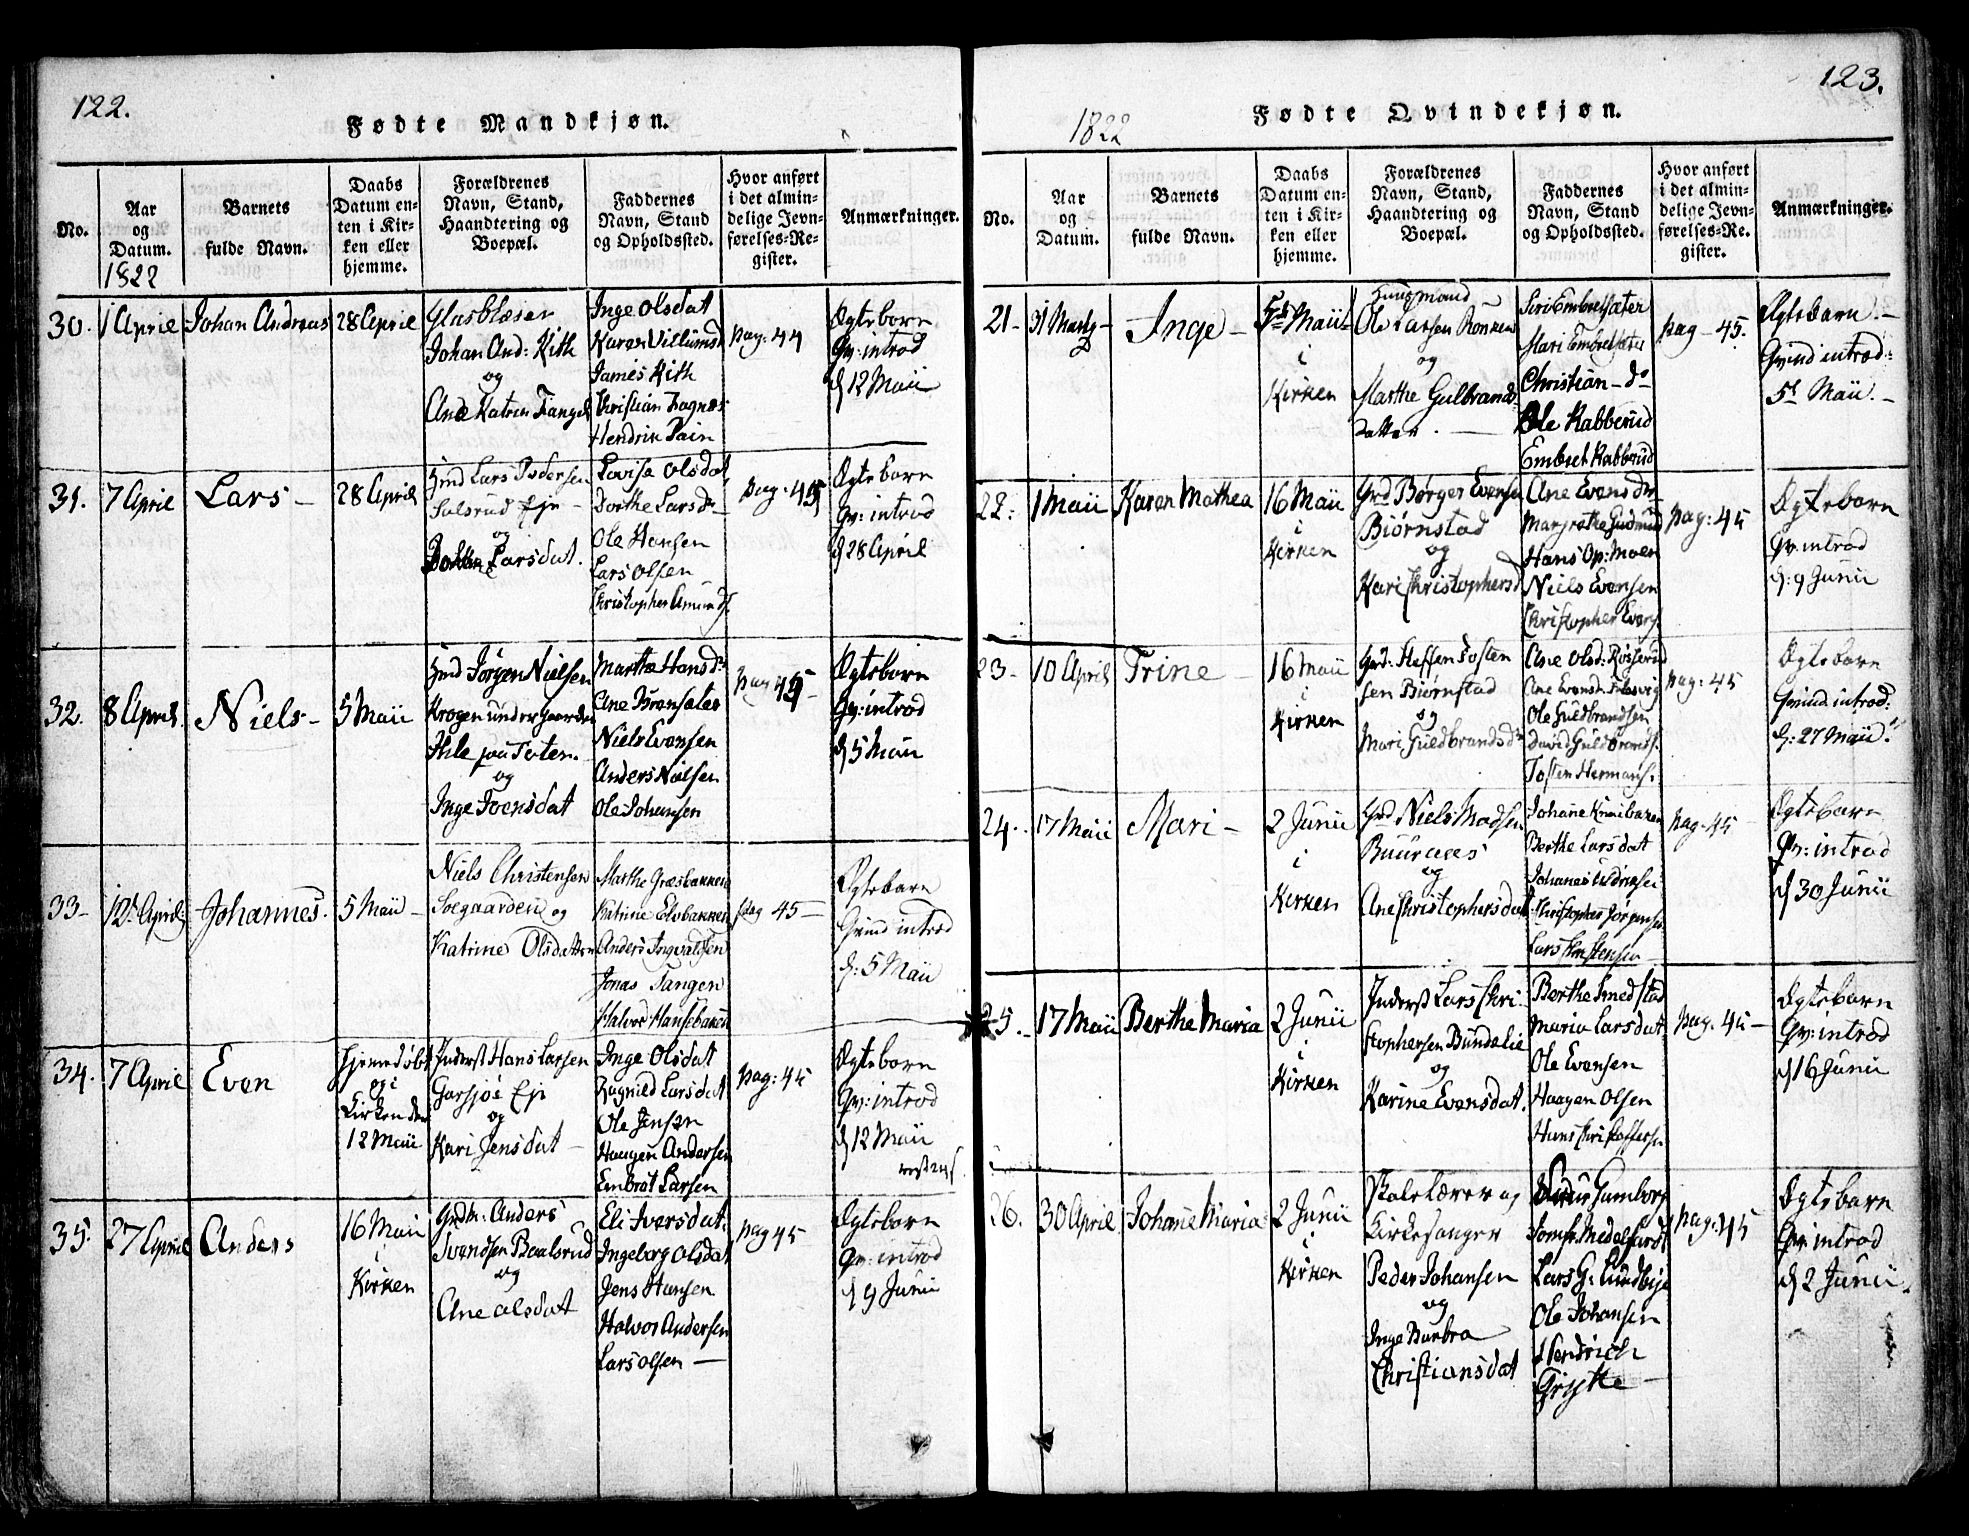 122.
Fødte Mandkjøn.
No.
Aar
og
Datum.
1822
Barnets
fulde Navn.
Daabs
Datum en-
ten i Kir-
ken eller
hjemme.
Forældrenes
Navn, Stand,
Haandtering og
Boepæl.
Faddernes
Navn, Stand
og Opholdssted.
Hvor anført
i det almin-
delige Jevn-
førelses-Re-
gister.
Anmærkninger.
30.
1 April
Johan Andreas
28 April
Glasblæser
Johan And: Kith
og
Ane Katrin Tangen
Inge Olsdat
Karen Villumsd
James Kith
Christian
Hendrik Pain
pag: 44
Ægtebarn
Qv: introd
d 12 Maii
31.
7 April
Lars –
28 April
Hmd Lars Pedersen
Sulsrud Eje –
og
Dorthe Larsdat.
Lovise Olsdat
Dorthe Larsd –
Ole Hansen
Lars Olsen
Christopher Amunds.
pag: 45
Ægtebarn
Qv: introd
d 28 April
32.
8 April
Niels –
5 Maii
Hmd Jørgen Nielsen
Krogen under Gaarden
Ihle paa Toten.
og
Inge Iversdat
Marthe Hansd
Ane Brænsæter
Niels Evensen
Anders Nielsen
Ole Johansen
pag 45 –
Ægtebarn
Qv: introd
d 5 Maii
33 –
12 April
Johannes.
5 Maii –
Niels Christensen
Soegaarden og
Katrine Olsdatter
Marthe Græsbakken
Katrine Elvbakken
Anders Ingvaldsen
Jonas Tangen
Halvor Hansebaken
pag 45 –
Ægtebarn
Qvind introd
d: 5 Maii
34.
7 April
Even
Hjemmedøbt
og i
Kirken den
12 Maii
Inderst Hans Larsen
Garsjøe Eje
og
Kari Jensdat –
Inge Olsdat
Ragnild Larsdat
Ole Jensen
Haagen Andersen
Embret Larsen
pag: 45
Ægtebarn
Qv: introd
d 12 Maii
35.
27 April
Anders
16 Maii
i
Kirken
Grdm: Anders
Svendsen Baalsrud
og
Ane Olsdat
Eli Iversdat
Ingeborg Olsdat
Jens Hansen
Halvor Andersen
Lars Olsen –
pag 45
Ægtebarn
Qv: introd
d 9 Junii
123.
Fødte Qvindekjøn.
1822
No.
Aar
og
Datum.
Barnets
fulde Navn.
Daabs
Datum en-
ten i Kir-
ken eller
hjemme.
Forældrenes
Navn, Stand,
Haandtering og
Boepæl.
Faddernes
Navn, Stand
og Opholdssted.
Hvor anført
i det almin-
delige Jevn-
førelses-Re-
gister.
Anmærkninger.
21 –
31 Marts –
Inge –
5te Maii
i
Kirken
Huusmand
Ole Larsen
og
Marthe Gulbrands-
datter. –
Siri Embretsæter
Mari Embretsæter
Christian – do
Ole Rabberud
Embret Rabberud
pag – 45.
Ægtebarn. –
Qvind introd:
5t Maii. –
22.
1 Maii
Karen Mathea
16 Maii
i
Kirken
Grd Børger Evensen
Biørnstad
og
Kari Christophersd
Ane Evensdtr
Margrethe Gudmund
Hans Op: Moen
Niels Evensen
Christopher Evens.
pag: 45
Ægtebarn
Qv. introd
d: 9 Junii
23 –
10 April
Trine –
16 Maii
i
Kirken
Grd: Steffen Tosten
sen Biørnstad
og
Mari Guldbrandsd
Ane Olsd: Rosserud
Ane Evensd:
Ole Guldbrandsen
David Guldbrands.
Tosten Hermans.
pag: 45
Ægtebarn
Qvind introd:
d: 27 Maii.
24.
17 Maii
Mari –
2 Junii
i
Kirken
Grd Niels Madsen
Buurnæs
og
Ane Christophersdat
Johane
Berthe Larsdat
Johanes
Christopher Jørgensen
Lars Christensen
pag 45 –
Ægtebarn
Qv: introd
d 30 Junii
25.
17 Maii
Berthe Maria
2 Junii
i
Kirken
Inderst Lars Chri-
stophersen Bundelie
og
Karine Evensdat.
Berthe Smedstad
Maria Larsdat
Ole Evensen
Haagen Olsen
Hans Christoffersen
pag. 45 –
Ægtebarn
Qv: introd
d 16 Junii
26.
30 April
Johane Maria
2 Junii
i
Kirken
Skolelærer og
Kirkesanger
Peder Johansen
og
Inge Barbra
Christiansdat
Gumborg
Jomfr Medelfardt
Lars G: Lundbye
Ole Johansen
Hendrich
Grytte –
pag: 45
Ægtebarn
Qv: introd
d 2 Junii.